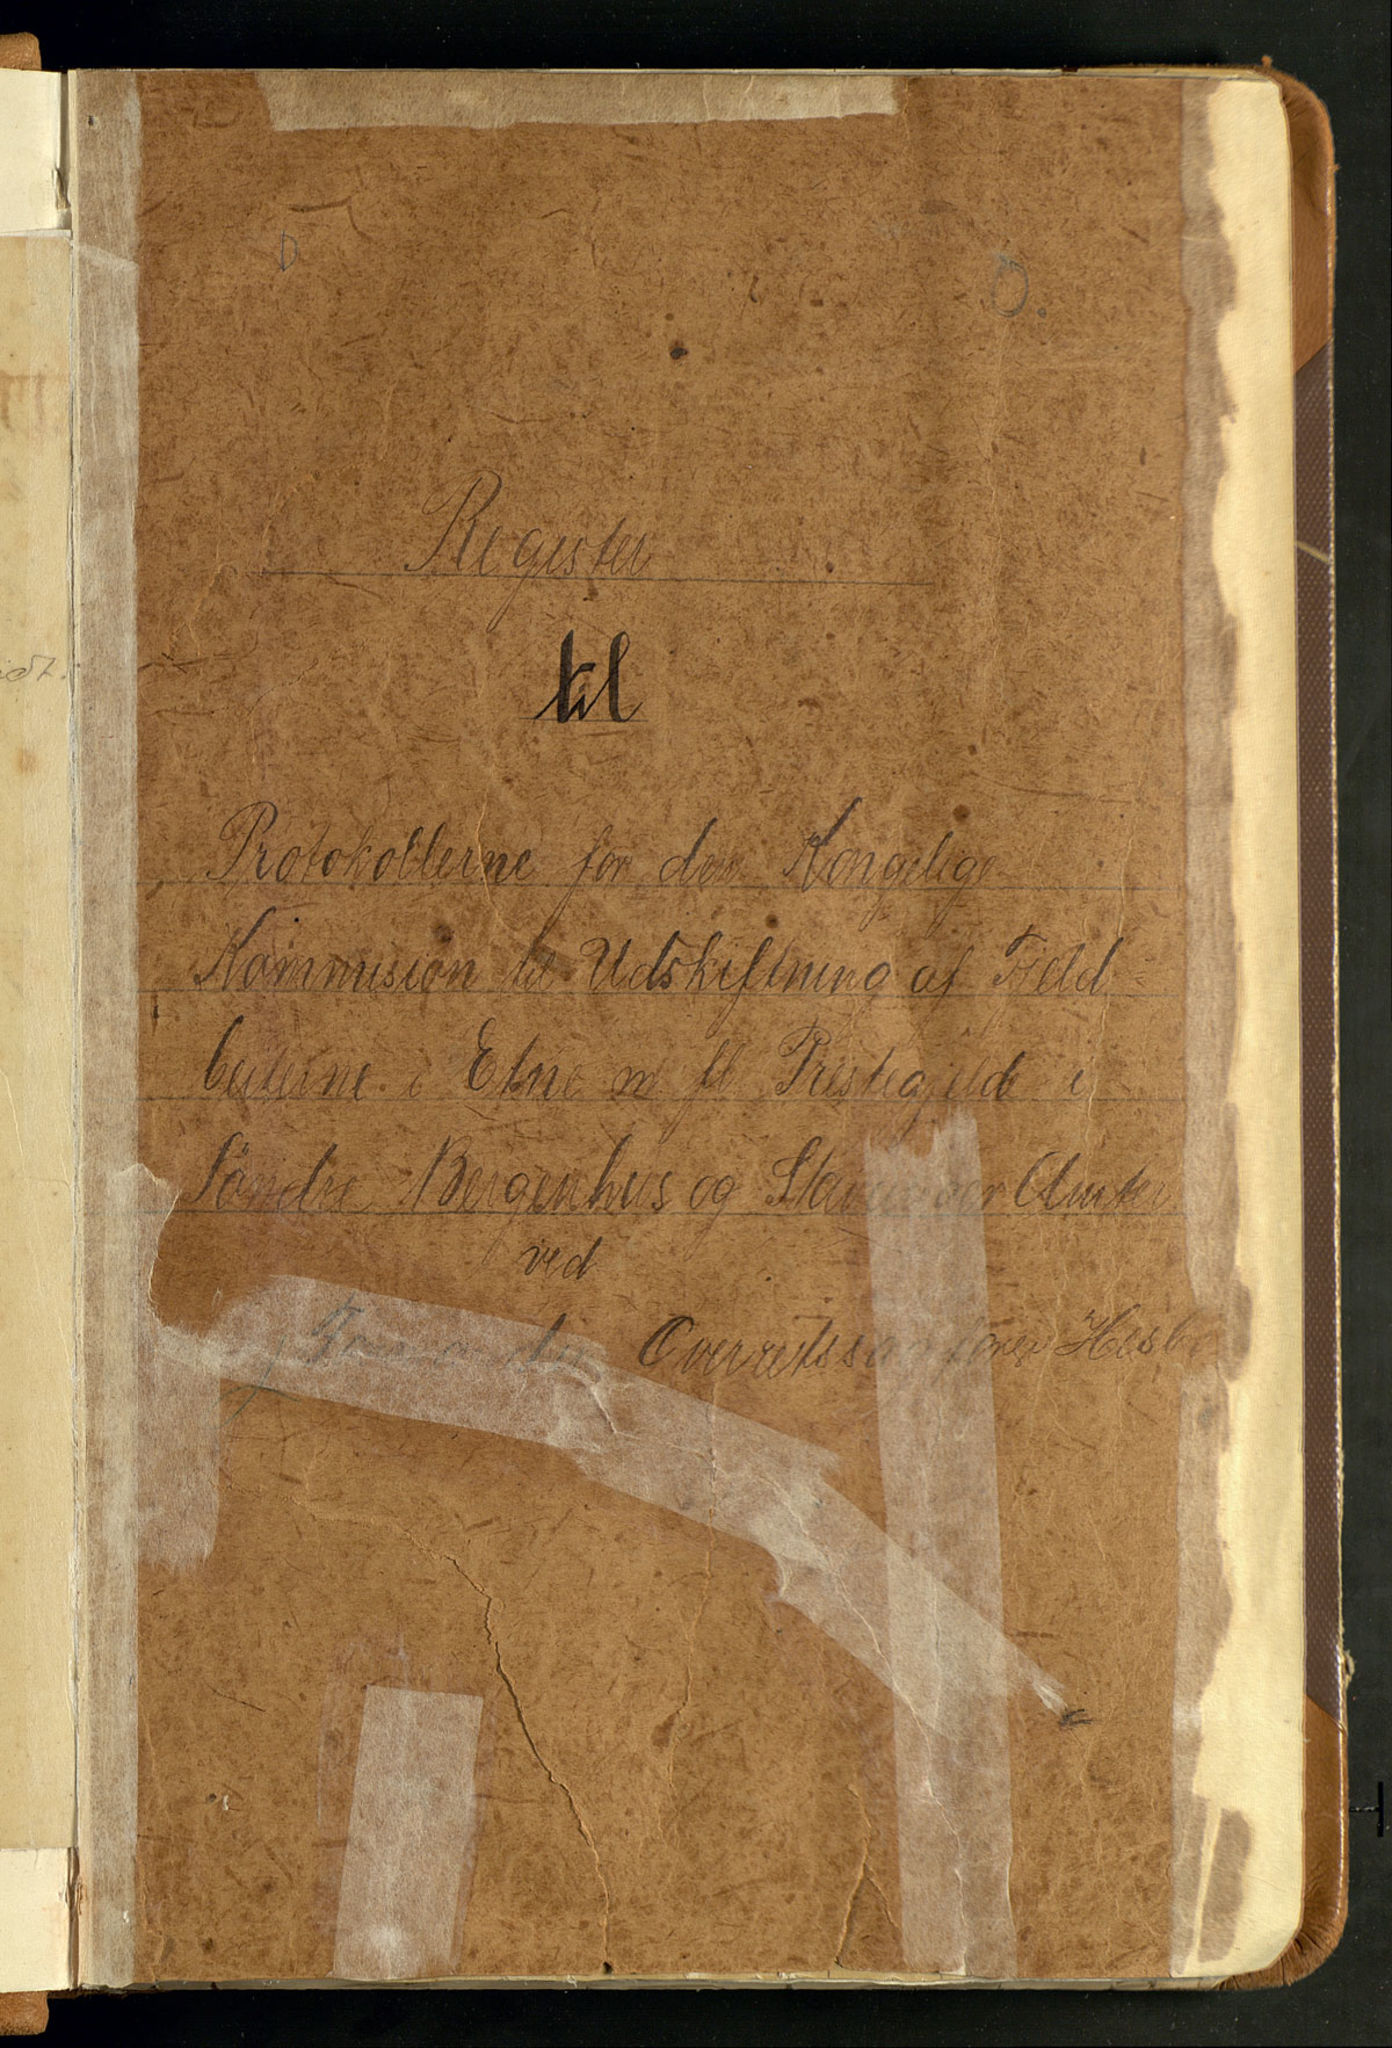 D
O.
Register
til
Protokollerne for den Kongelige
Kommission til Udskiftning af Fjeld
beiterne i Etne m fl Prestegjeld i
Söndre Bergenhus og Stavanger Amter
ved
Formanden Overretssagfører Hesb